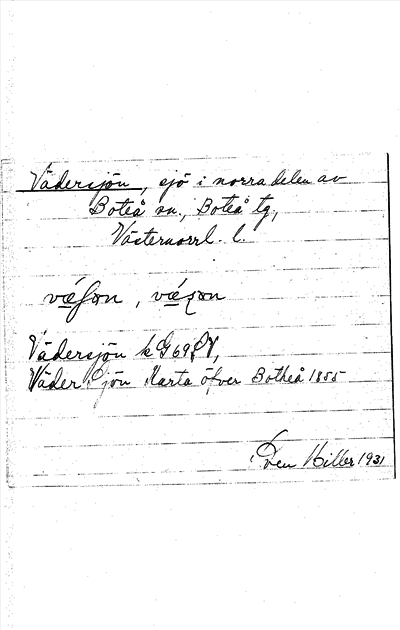 Vädersjön, sjö i norra delen av
Boteå sn., Boteå tg,
Västernorrl. l.
Vädersjön kG69
Wäder Sjön Karta öfver Botheå 1855
Sven Hiller 1931